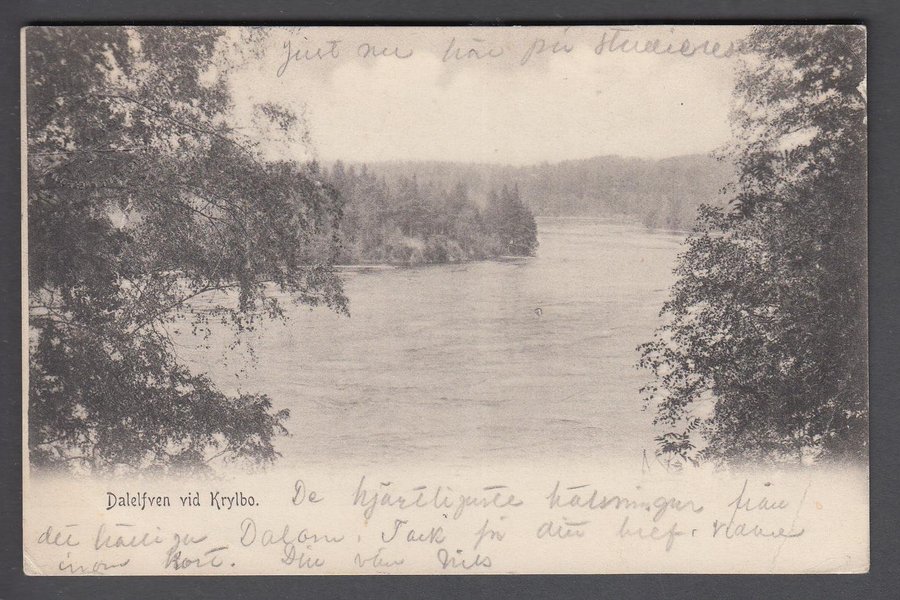 Just nu här på studieresa
Dalelfven vid Krylbo.
De hjärtligaste hälsningar från
det härliga Dalom. Tack för ditt bref.
inom kort. Din vän Nils